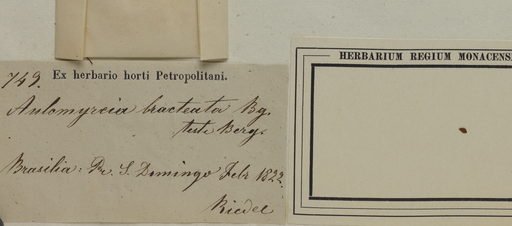 749. Ex herbario horti Petropolitani.
Aulomyrcia bracteata Bg.
teste Berg.
Brasilia: Pr. S. Domingo Febr 1822.
Riedel
HERBARIUM REGIUM MONACENS